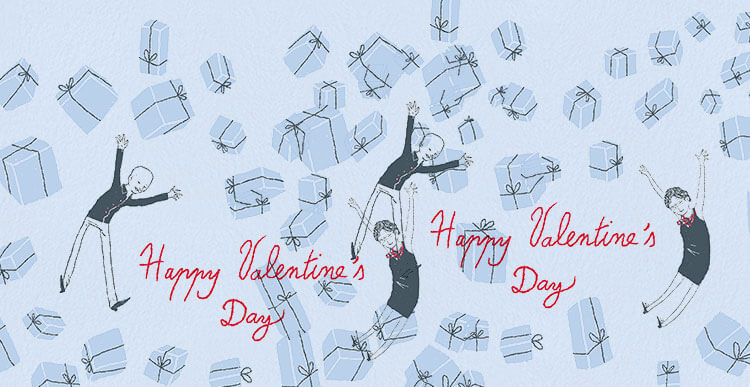 Happy Valentine's
Day
Happy Valentine's
Day